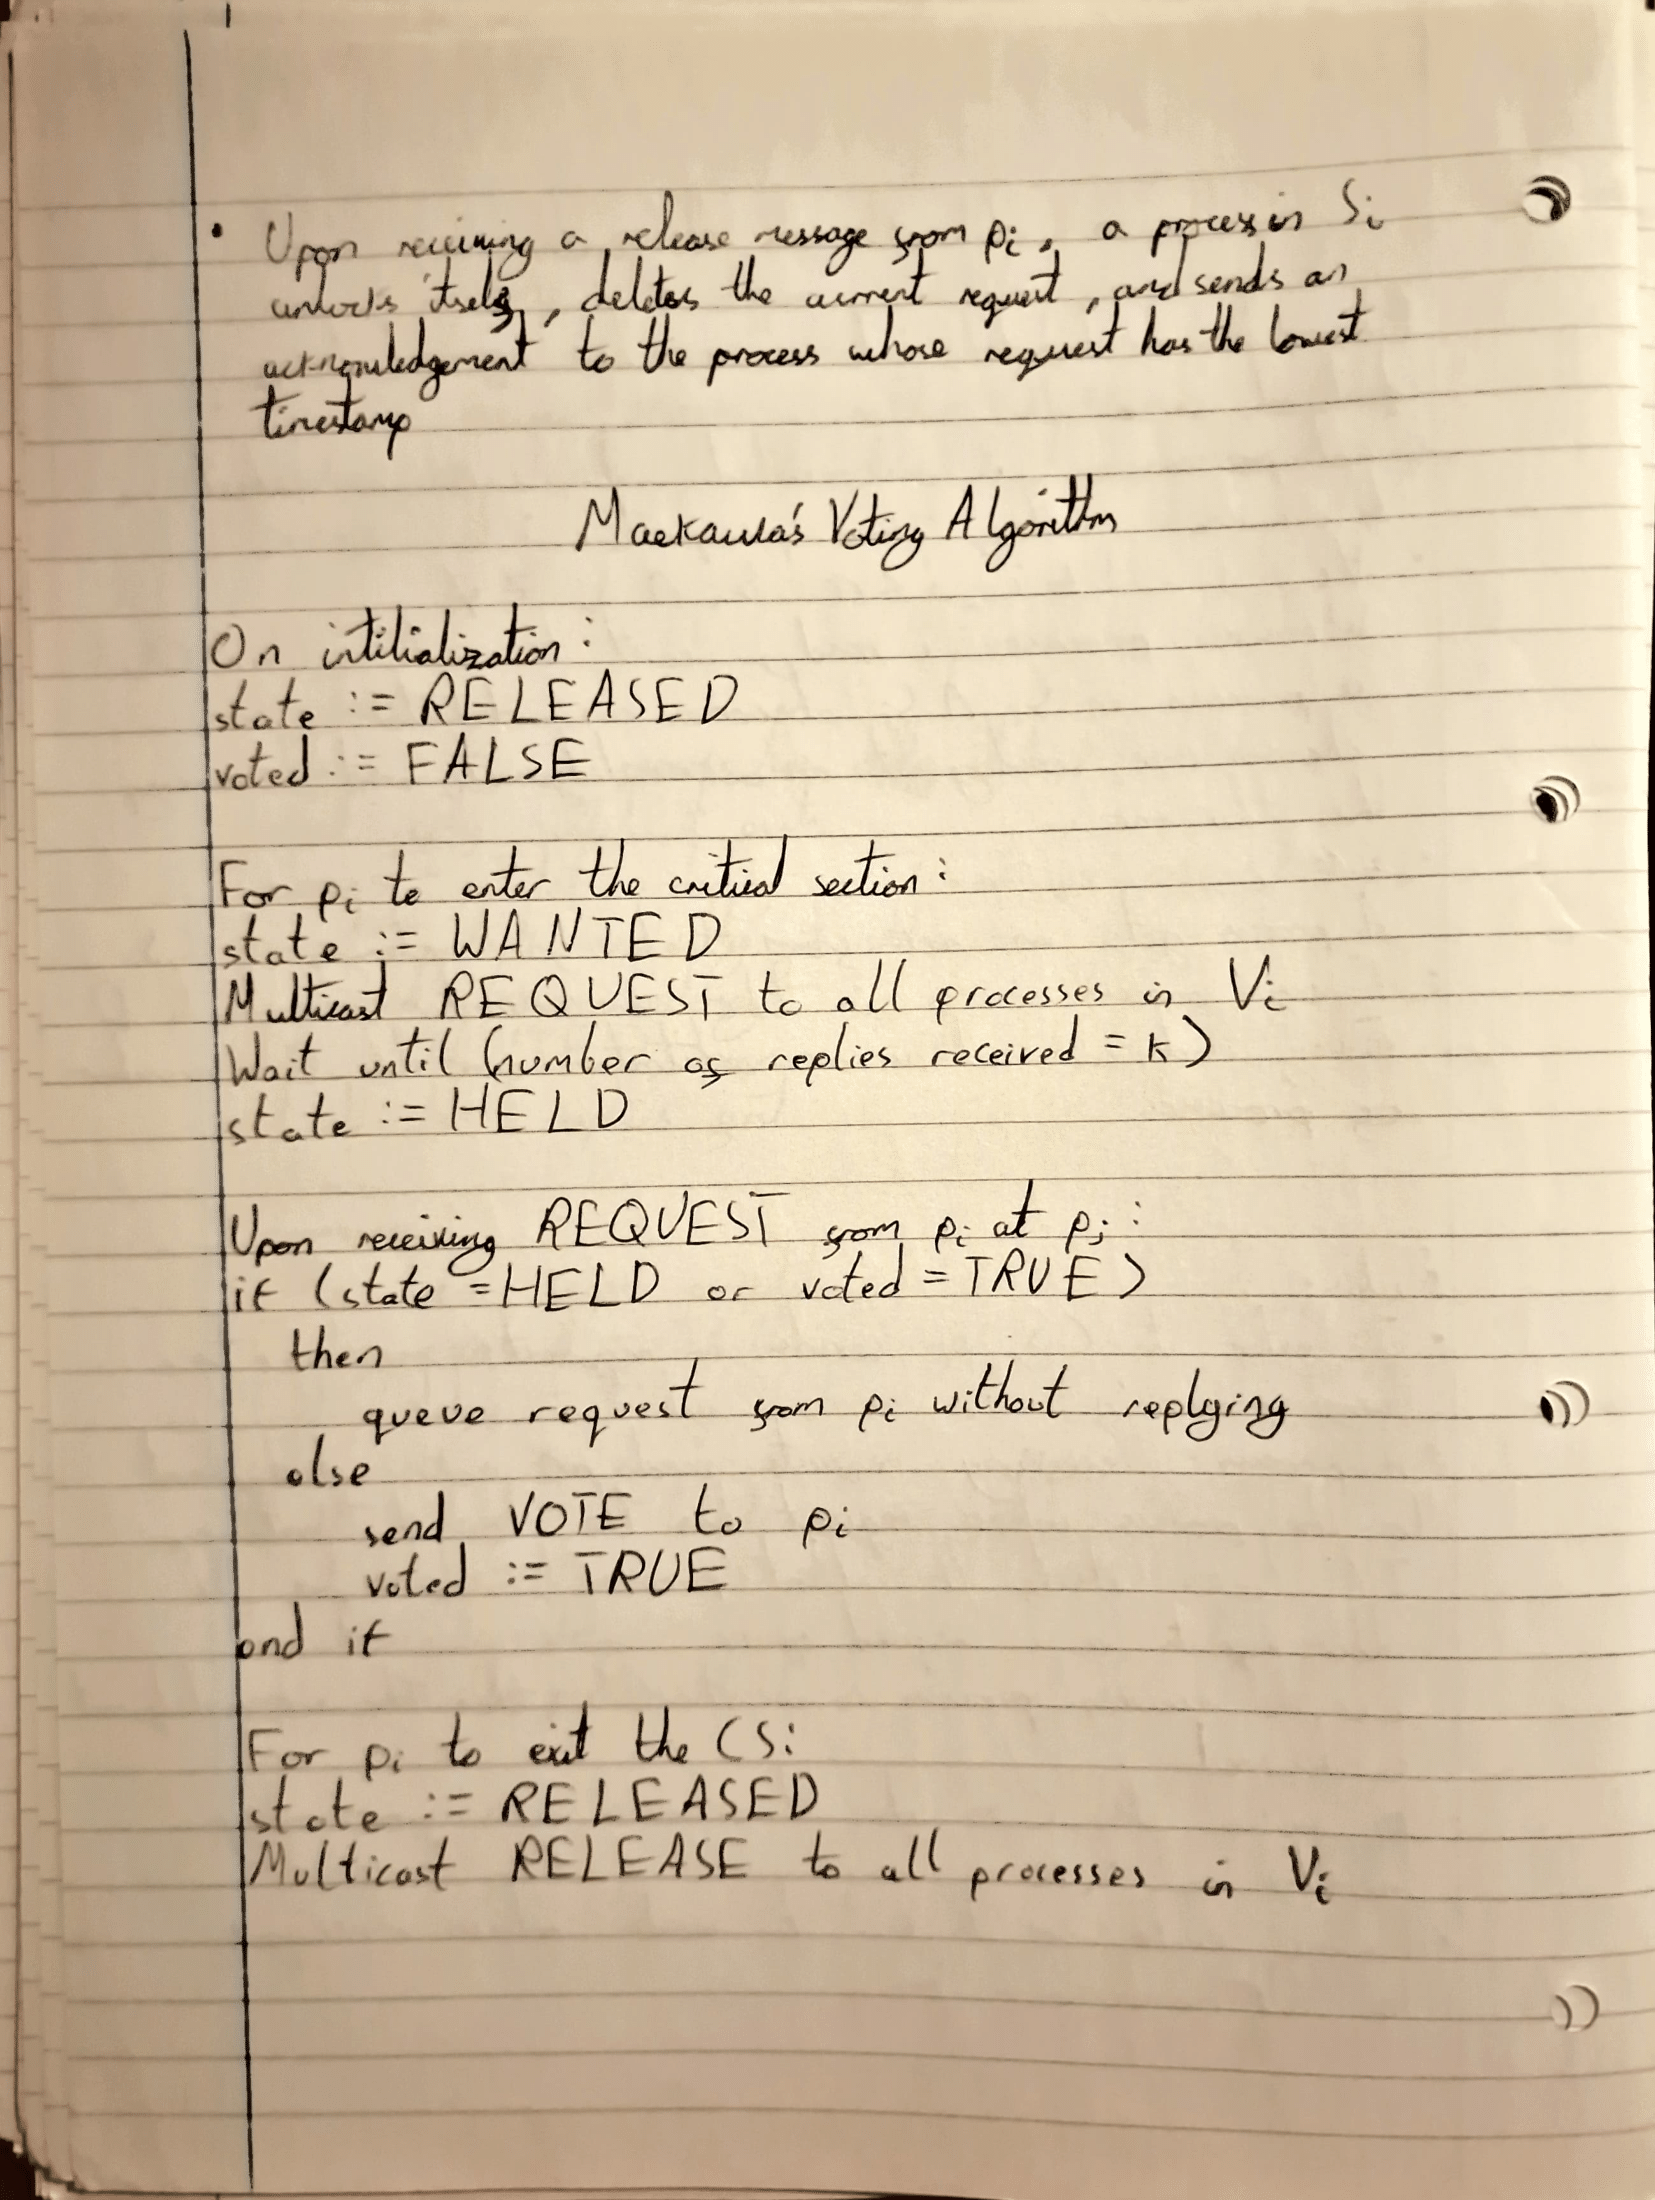 • Upon receiving a release message from pi, a process in Si
unlocks itself, deletes the current request, and sends an
acknowledgement to the process whose request has the lowest
timestamp
Maekawa's Voting Algorithm
On intilialization:
state := RELEASED
voted := FALSE
For pi to enter the critical section:
state := WANTED
Multicast REQUEST to all processes in Vi
Wait until (number of replies received = K)
state := HELD
Upon receiving REQUEST from pi at pj:
if (state = HELD or voted = TRUE)
then
queue request from pi without replying
else
send VOTE to pi
voted := TRUE
end if
For pi to exit the CS:
state := RELEASED
Multicast RELEASE to all processes in Vi